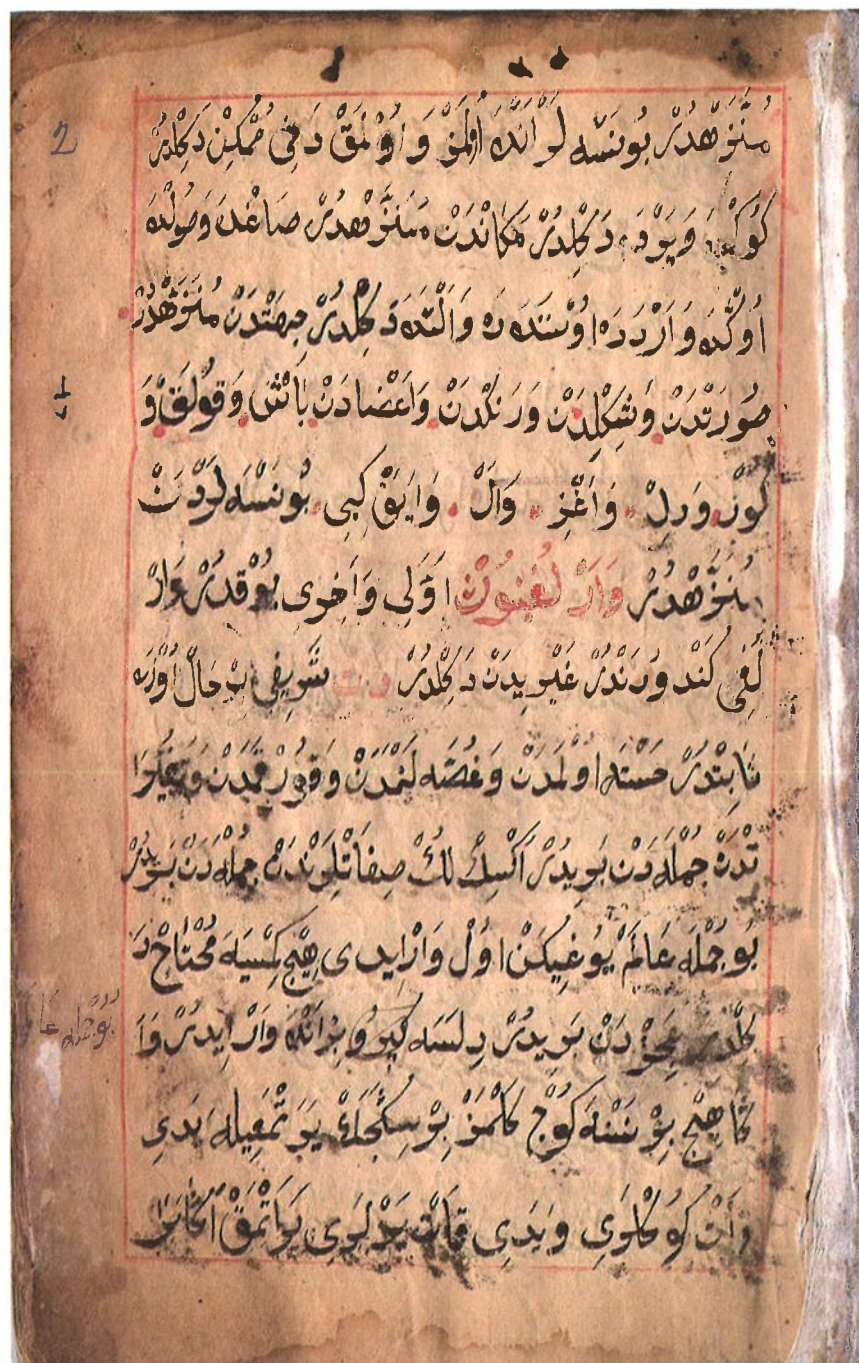 2
مُنَزَّهْدُرْ بُونَسَّه لَرْ اَنْدَه اُولْمَزْ وَ اُوْلْمَقْ دَخِى مُمْكِنْ دَكِلْدُرْ
كُوكْدَه وَ يَرْدَه دَكِلْدُرْ مَكَانْدَنْ مُنَزَّهْدُرْ صَاغْدَه وَ صُولْدَه
اُوكْدَه وَ اَرْدَدَه اُوسْتَدَه وَ اَلْتَدَه دَكِلْدُرْ جِهَتْدَنْ مُنَزَّهْدُرْ
صُورَتْدَنْ وَ شِكِلْدَنْ وَ رَنَكْدَنْ وَ اَعْضَادَنْ بَاشْ وَ قُولَقْ وَ
كُوزْ وَ دِلْ وَ اَغِزْ وَ اَلْ وَ اَيَقْ كِبِى بُونَسْه لَرْدَنْ
مُنَزَّهْدُرْ وَارْ لُغِنُوكْ اَوَّلِى وَ اَخِرِى يُوقْدُرْ وَارْ
لُغِى كَنْدُوزَنْدُرْ غَيْرِيدَنْ دَكِلْدُرْ ذَاتِ شَرِيفِى بِرْ حَالْ اُوزَرَه
ثَابِتْدُرْ خَسْتَه اُولْمَدَنْ وَ غُصَّه لَنْمَدَنْ وَ قُورْقْمَدَنْ وَ تَغَيُّرَا
تْدَنْ جُمْلَه دَنْ بَرِيدُرْ اَكْسِكْ لُكْ صِفَاتْلَرِنْدَنْ جُمْلَه دَنْ بَرِيدُرْ
بُو جُمْلَه عَالَمْ يُوغِيكَنْ اُولْ وَارْ ايدِى هِيجْ كِمْسَيَه مُحْتَاجْ دَ
كِلْدُرْ عَجِزْ دَنْ بَرِيدُرْ دِلَسَه كِيرُو بِرْ اَنْدَه وَارْ ايدَرْ وَ اَ
كَا هِيجْ بِرْ نَسْنَه كُوجْ كَلْمَزْ بِرْ سِكَجَكْ يَرَتْمَغِيلَه يَدِى
قَاتْ كُوكْلَرِى وَ يَدِى قَاتْ يَرْلَرِى يَرَاتْمَقْ اَكَا بَرَا
بُو جُمْلَه عَا